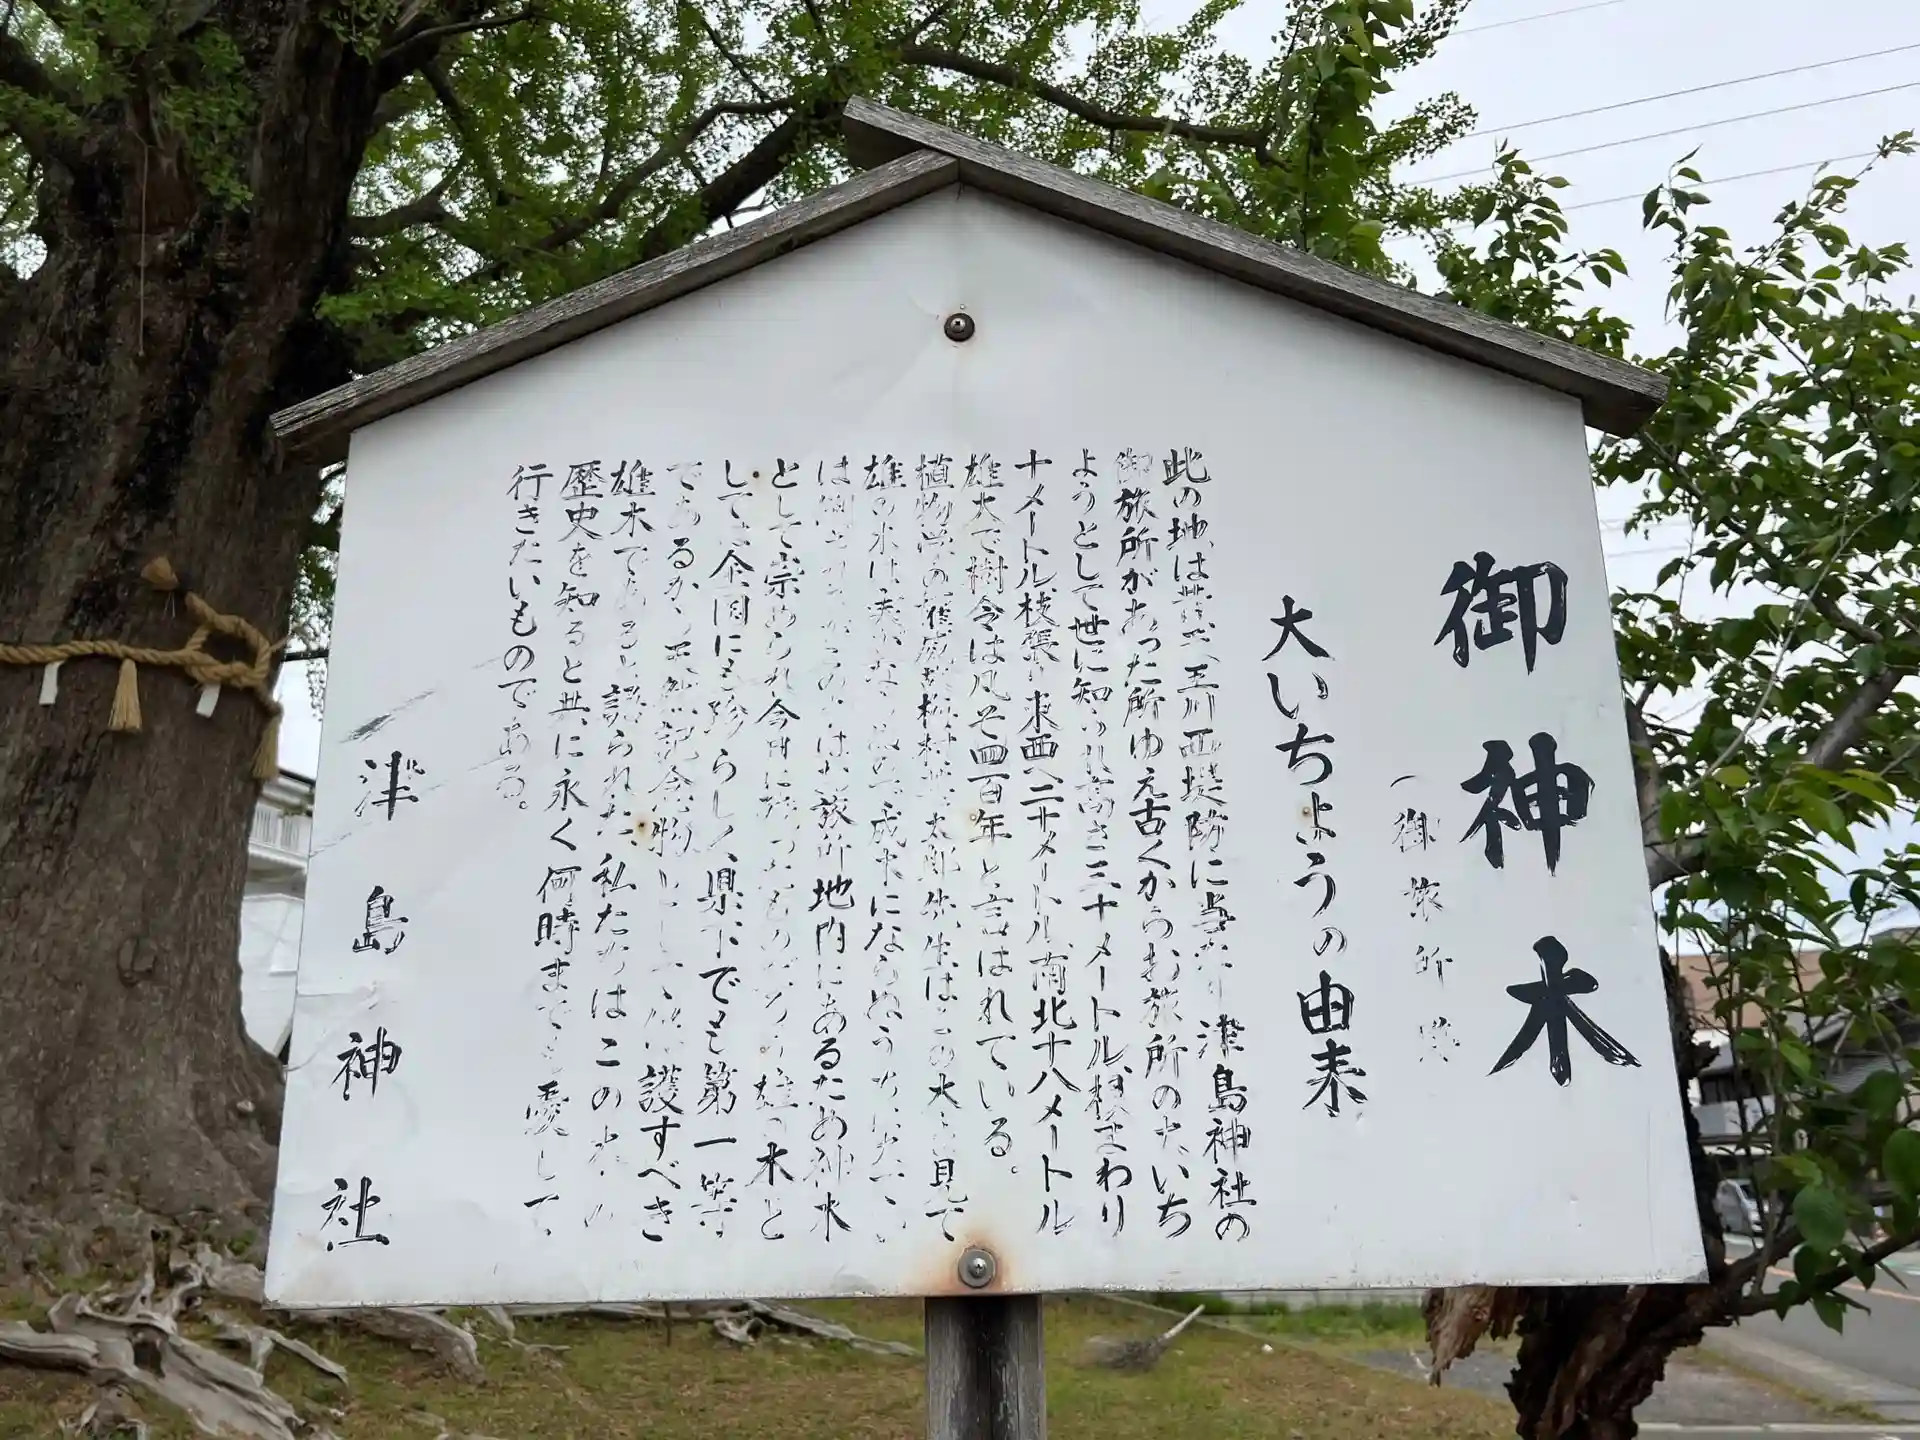 御神木
(御旅所跡
大いちょうの由来
此の地は昔天王川西堤防に当たり津島神社の
御旅所があった所ゆえ古くからお旅所の大いち
ようとして世に知られ高さ三十メートル、根まわり
十メートル枝張り東西二十メートル南北十八メートル
雄大で樹令は凡そ四百年と言はれている。
植物学の権威 太郎先生はこの大 見て
雄の木は実がな 成木にならぬう
は お旅所地内にあるため神木
として崇められ今日に残ったものだろう雄の木と
しては全国にも珍らしく、県下でも第一等
であるから 記念物として 保護すべき
雄木であると語られた、私たちはこの木の
歴史を知ると共に永く何時までも愛して
行きたいものである。
津島神社